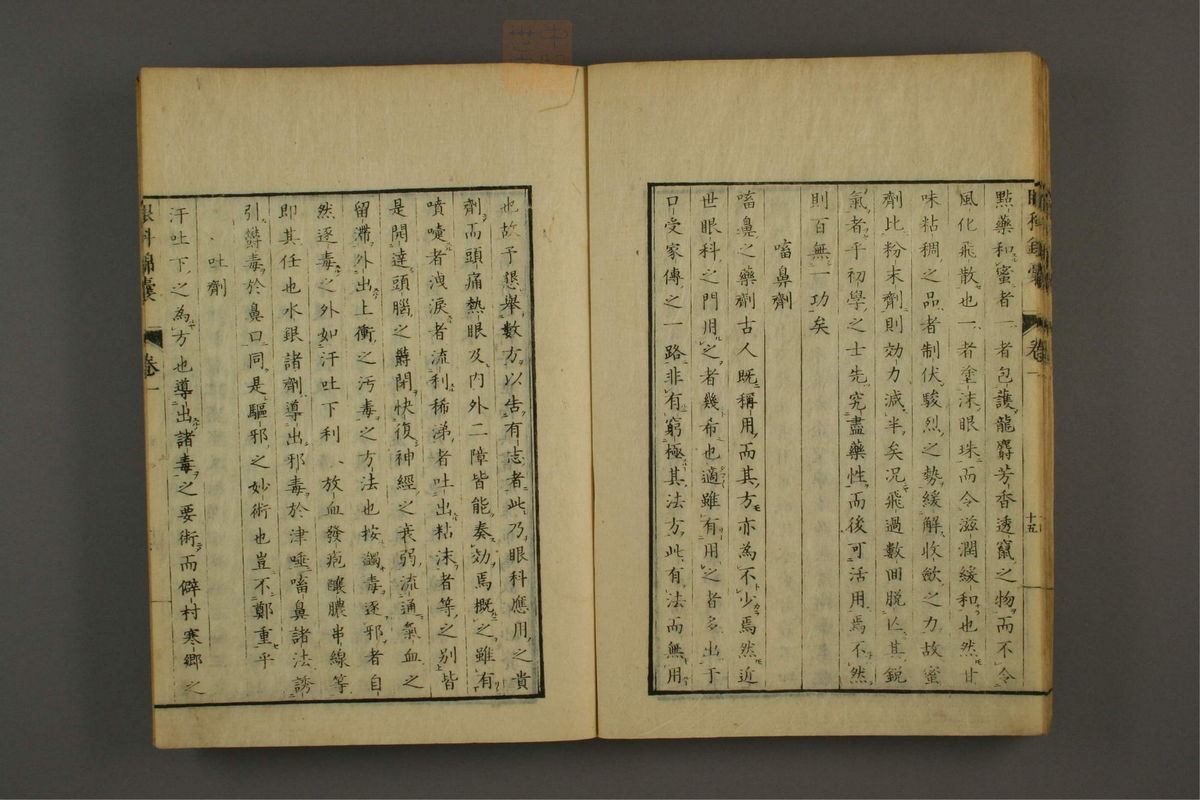 眼科錦囊 卷一
十五
點藥和蜜者一者包護龍麝芳香透竄之物而不令
風化飛散也一者塗沫眼珠而令滋潤緩和也然甘
味粘稠之品者制伏駿烈之勢緩解收斂之力故蜜
劑比粉末劑則効力減半矣況飛過數囬脫亾其銳
氣者乎初學之士先究盡藥性而後可活用焉不然
則百無一功矣
嗜鼻劑
嗜鼻之藥劑古人既稱用而其方亦為不少焉然近
世眼科之門用之者幾布也適雖有用之者多出于
口受家傳之一路非有窮極其法方此有法而無用
也故予懇舉數方以告有志者此乃眼科應用之貴
劑而頭痛熱眼及內外二障皆能奏効焉概之雖有
噴嚏者洩淚者流利稀涕者吐出粘沫者等之別皆
是開達頭腦之欝閉快復神經之衰弱流通氣血之
留滯外出上衝之汚毒之方法也按蠲毒逐邪者自
然逐毒之外如汗吐下利放血發疱釀膿串線等
即其任也水銀諸劑導出邪毒於津唾嗜鼻諸法誘
引欝毒於鼻口同是驅邪之妙術也豈不鄭重乎
吐劑
汗吐下之為方也導出諸毒之要術而僻村寒鄉之
眼科錦囊 卷一